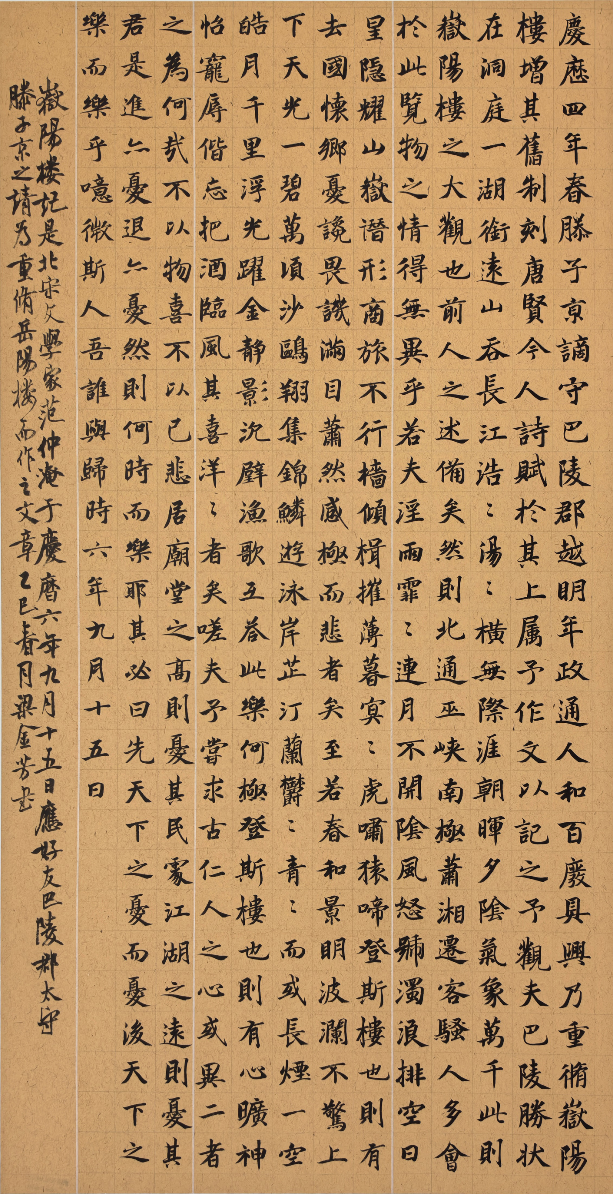 慶歷四年春滕子京謫守巴陵郡越明年政通人和百廢具興乃重脩嶽陽
樓增其舊制刻唐賢今人詩賦於其上属予作文以記之予觀夫巴陵勝状
在洞庭一湖銜遠山吞長江浩〻湯〻橫無際涯朝暉夕陰氣象萬千此則
嶽陽樓之大觀也前人之述備矣然則北通巫峽南極瀟湘遷客騷人多會
於此覽物之情得無異乎若夫淫雨霏〻連月不開陰風怒號濁浪排空日
星隱耀山嶽潛形商旅不行檣傾楫摧薄暮冥〻虎嘯猿啼登斯樓也則有
去國懷鄉憂讒畏譏滿目蕭然感極而悲者矣至若春和景明波瀾不驚上
下天光一碧萬頃沙鷗翔集錦鱗遊泳岸芷汀蘭欝〻青〻而或長煙一空
皓月千里浮光躍金靜影沉璧漁歌互荅此樂何極登斯樓也則有心曠神
怡寵辱偕忘把酒臨風其喜洋〻者矣嗟夫予嘗求古仁人之心或異二者
之為何哉不以物喜不以己悲居廟堂之高則憂其民處江湖之遠則憂其
君是進亦憂退亦憂然則何時而樂耶其必曰先天下之憂而憂後天下之
樂而樂乎噫微斯人吾誰與歸時六年九月十五日
嶽陽楼記是北宋文學家范仲淹于慶曆六年九月十五日應好友巴陵郡太守
滕子京之請为重脩岳陽楼而作之文章乙巳春月梁金芳书